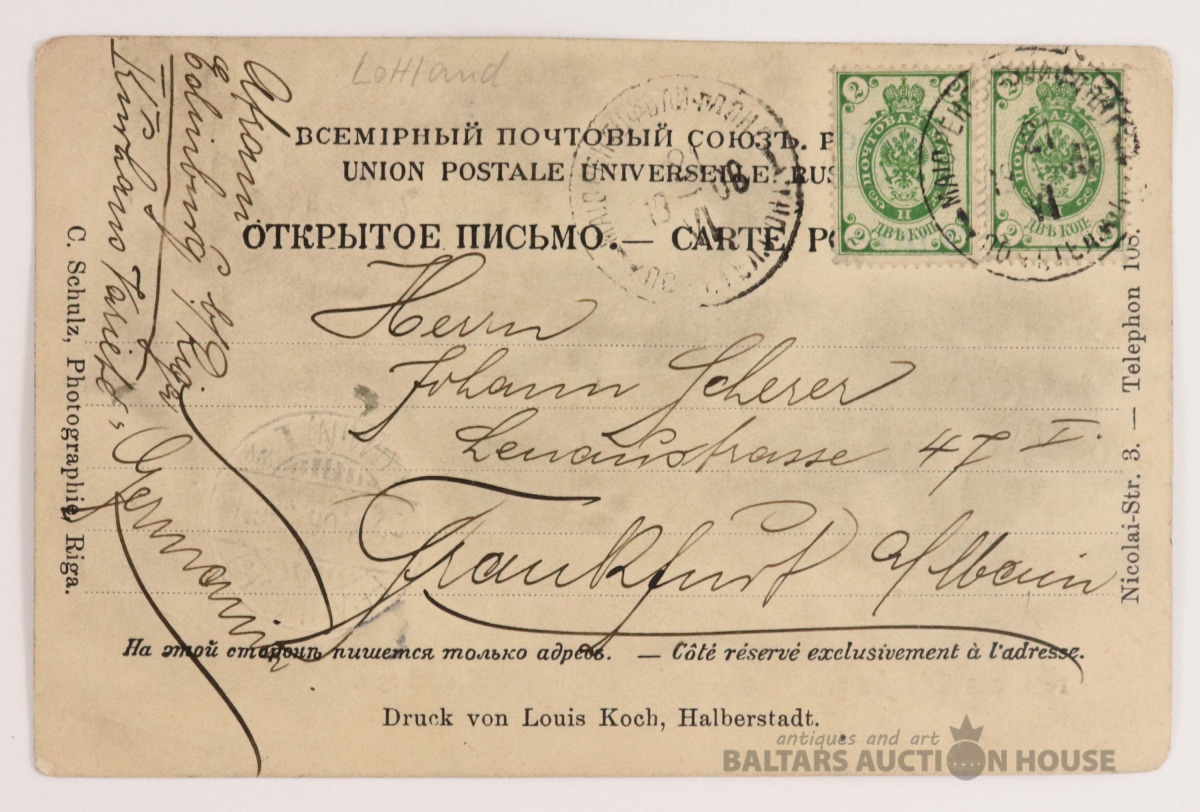 Lettland
ВСЕМІРНЫЙ ПОЧТОВЫЙ СОЮЗЪ. Р
UNION POSTALE UNIVERSELLE. RUS
ОТКРЫТОЕ ПИСЬМО.— CARTE PO
2 2
ПОЧТОВАЯ МАРКА
II
ДВѢ КОП.
2 2
2
II
ДВѢ КОП.
2
VI
08
Herrn
Johann Scherer
Lenaustrasse 47 I.
Frankfurt a/Main
b/ Riga
Germania
C. Schulz, Photographie, Riga.
Nicolai-Str. 3. — Telephon 108.
На этой сторонѣ пишется только адресъ. — Côté réservé exclusivement à l'adresse.
Druck von Louis Koch, Halberstadt.
antiques and art
BALTARS AUCTION HOUSE